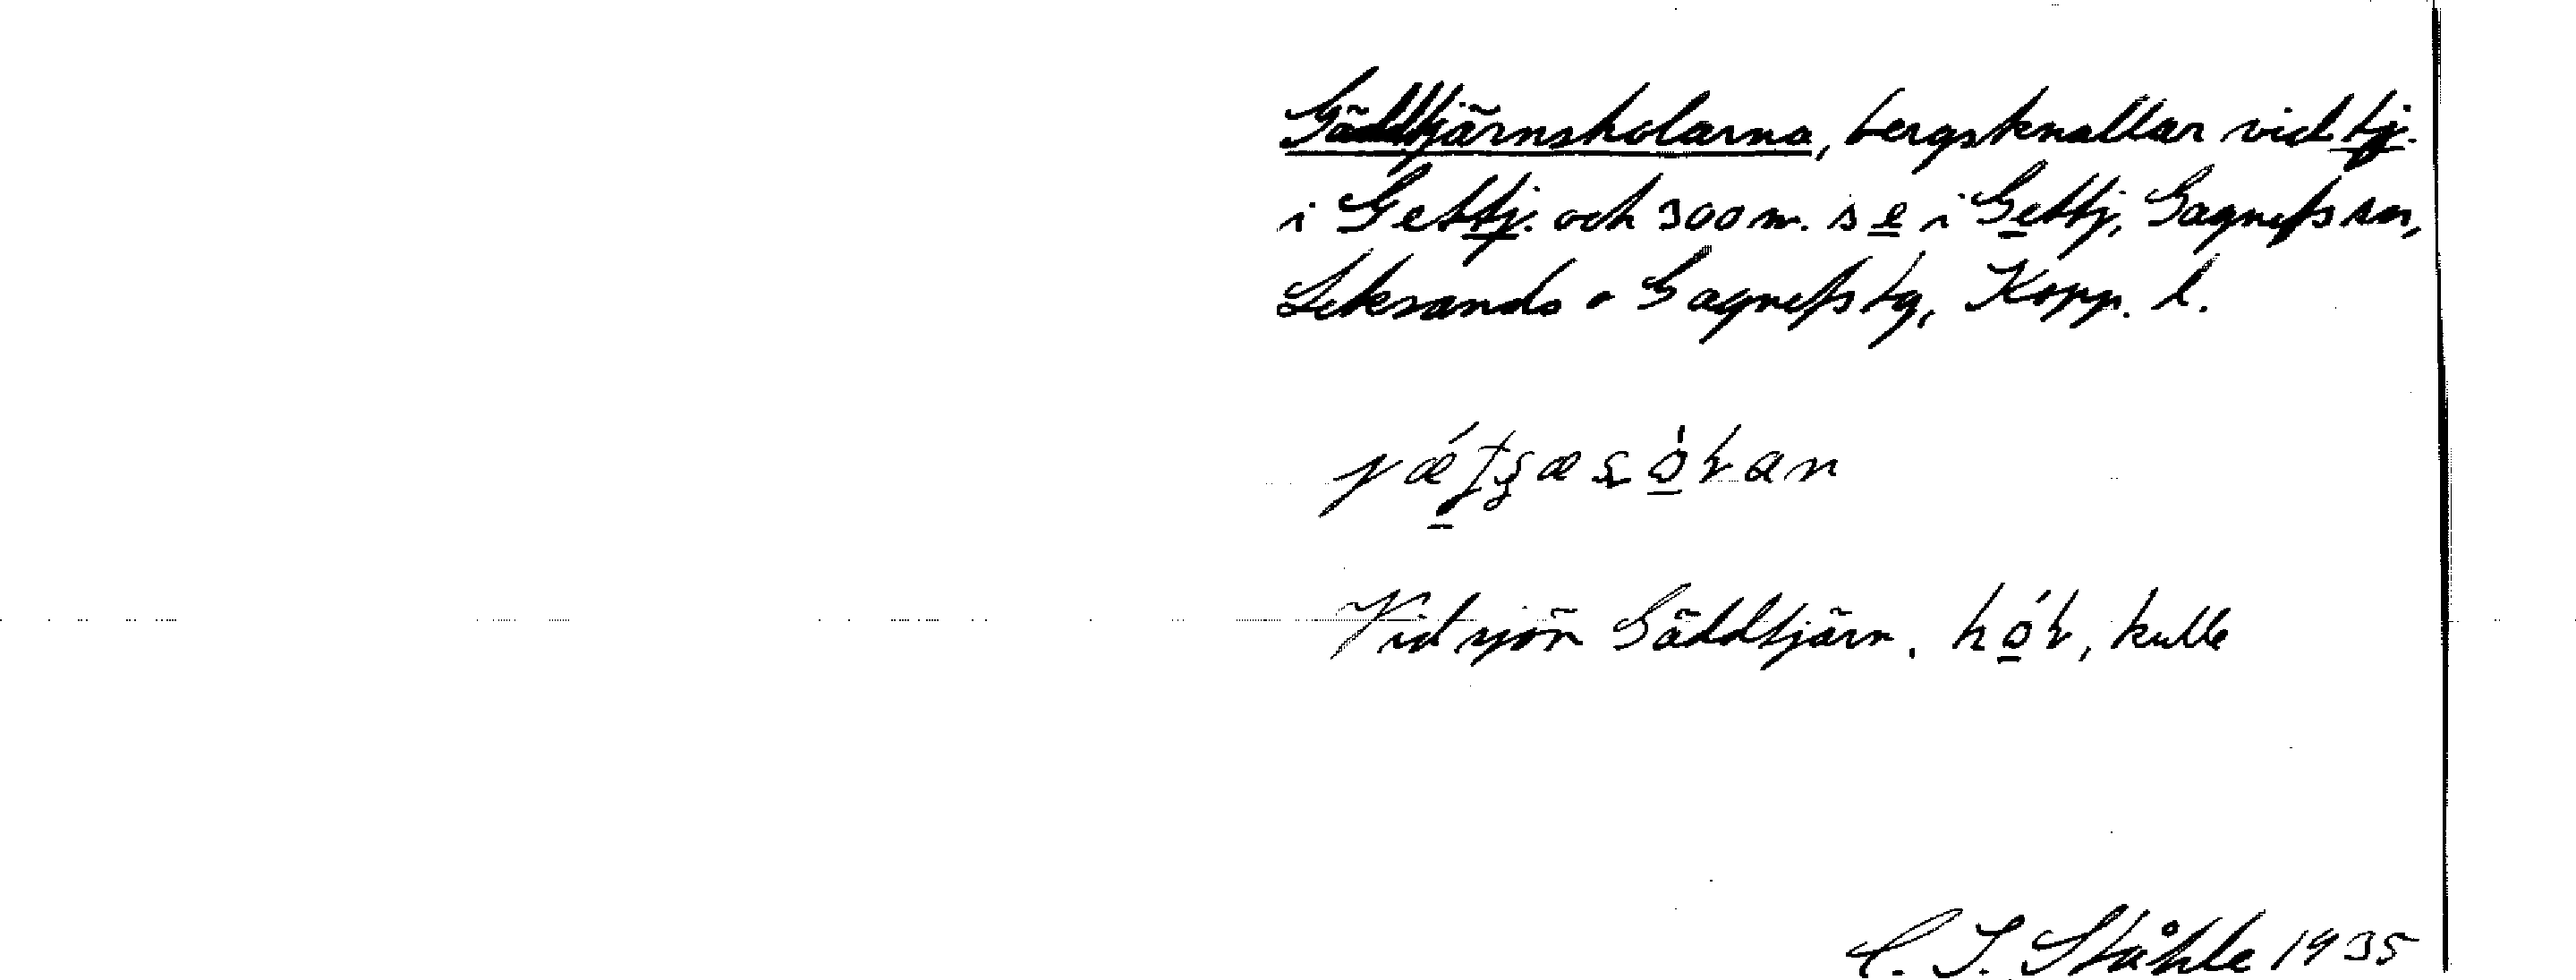 Gäddtjärnskolarna, bergsknallar vid tj.
i Gettj. och 300 m. s e i Gettj, Gagnefs sn,
Leksands o Gagnefs tg, Kopp. l.
Vid sjön Gäddtjärn. kulle
C. I. Ståhle 1935